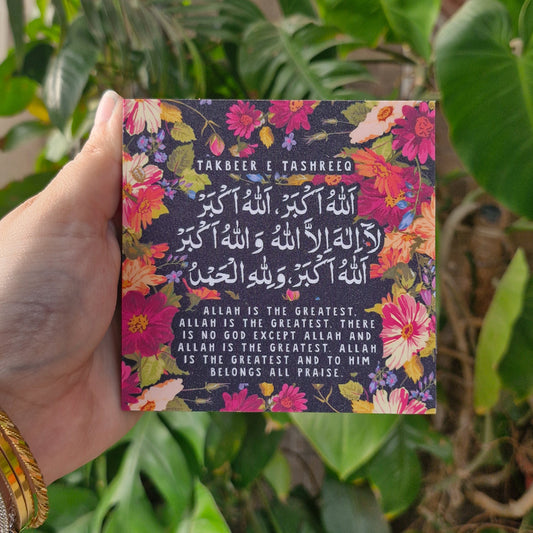 TAKBEER E TASHREEQ
اَللّٰهُ اَكْبَرْ، اَللّٰهُ اَكْبَرْ
لَآ اِلٰهَ اِلَّا اللّٰهُ وَاللّٰهُ اَكْبَرْ
اَللّٰهُ اَكْبَرْ، وَلِلّٰهِ الْحَمْدُ
ALLAH IS THE GREATEST.
ALLAH IS THE GREATEST. THERE
IS NO GOD EXCEPT ALLAH AND
ALLAH IS THE GREATEST. ALLAH
IS THE GREATEST AND TO HIM
BELONGS ALL PRAISE.